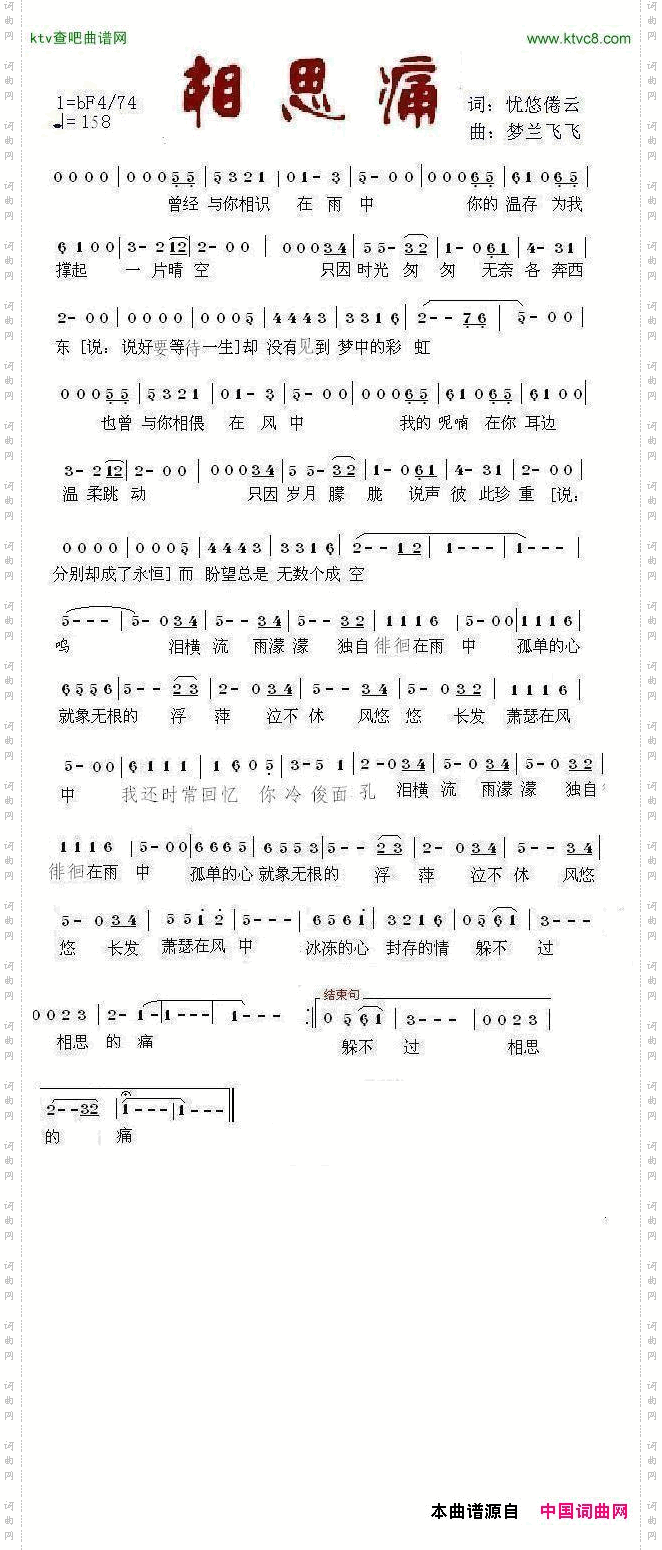 ktv查吧曲谱网 www.ktvc8.com
相思痛
1=bF4/74
♩=158
词：忧悠倦云
曲：梦兰飞飞
0000|00055|5321|01-3|5-00|00065|61065|
曾经 与你相识 在 雨 中 你的 温存 为我
6100|3-212|2-00|00034|55-32|1-061|4-31|
撑起 一 片晴 空 只因 时光 匆 匆 无奈 各 奔西
2-00|0000|0000|0005|4443|3316|2--76|5-00
东 [说：说好要等待一生]却 没有见到 梦中的彩 虹
00055|5321|01-3|5-00|00065|61065|6100
也曾 与你相偎 在 风 中 我的 呢喃 在你 耳边
3-212|2-00|00034|55-32|1-061|4-31|2-00
温 柔跳 动 只因 岁月 朦 胧 说声 彼 此珍 重 [说：
0000|0005|4443|3316|2--12|1---|1---|
分别却成了永恒] 而 盼望总是 无数个成 空
5---|5-034|5--34|5--32|1116|5-00|1116
呜 泪横 流 雨濛 濛 独自 徘徊在雨 中 孤单的心
6556|5--23|2-034|5--34|5-032|1116
就象无根的 浮 萍 泣不 休 风悠 悠 长发 萧瑟在风
5-00|6111|1605|3-51|2-034|5--34|5-032|
中 我还时常回忆 你 冷 俊面 孔 泪横 流 雨濛 濛 独自
1116|5-00|6665|6553|5--23|2-034|5--34|
徘徊在雨 中 孤单的心 就象无根的 浮 萍 泣不 休 风悠
5-034|5512|5---|6561|3216|0561|3---|
悠 长发 萧瑟在风 中 冰冻的心 封存的情 躲不 过
0023|2-1-|1---|1---:||结束句 0561|3---|0023|
相思 的 痛 躲不 过 相思
2--32|1---|1---||
的 痛
本曲谱源自 中国词曲网